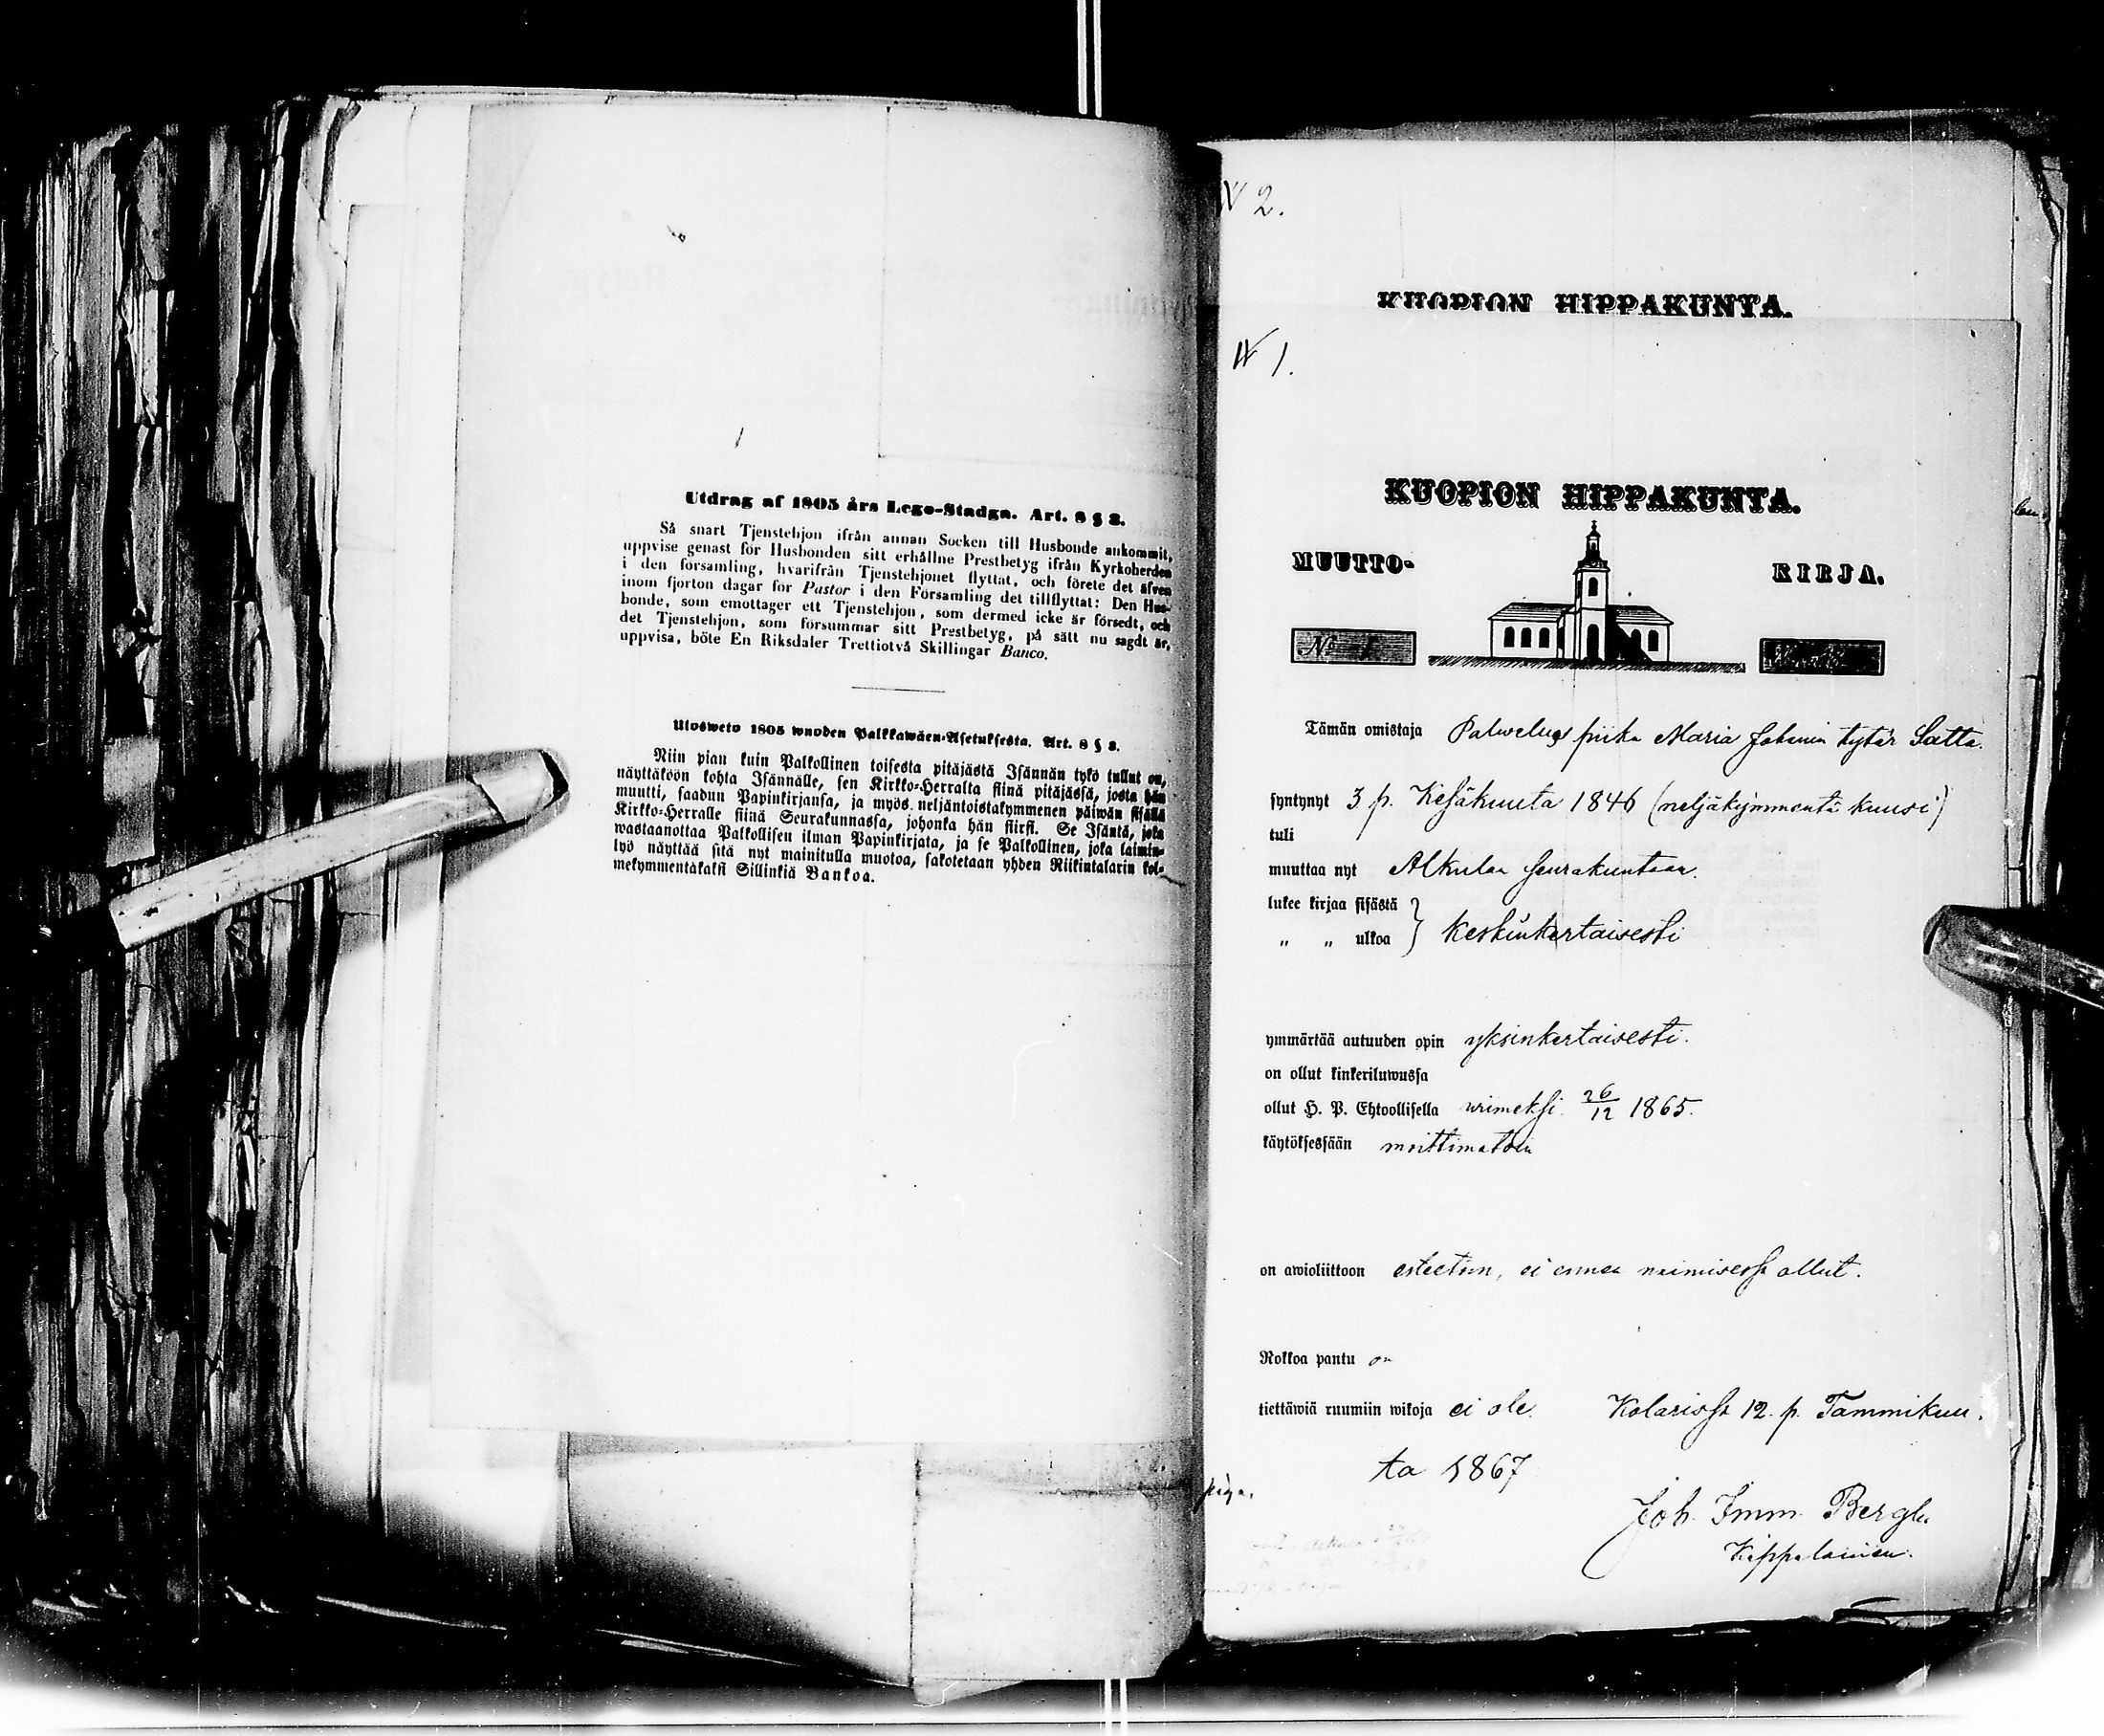 Utdrag af 1805 års Lego-Stadga. Art. 8 § 8.
Så snart Tjenstehjon ifrån annan Socken till Husbonde ankommit,
uppvise genast för Husbonden sitt erhållne Prestbetyg ifrån Kyrkoherden
i den församling, hvarifrån Tjenstehjonet flyttat, och förete det äfven
inom fjorton dagar för Pastor i den Församling det tillflyttat: Den Hus-
bonde, som emottager ett Tjenstehjon, som dermed icke är försedt, och
det Tjenstehjon, som försummar sitt Prestbetyg, på sätt nu sagdt är,
uppvisa, böte En Riksdaler Trettiotvå Skillingar Banco.
Ulosweto 1805 wuoden Palkkawäen-Asetuksesta. Art. 8 § 8.
Niin pian kuin Palkollinen toisesta pitäjästä Isännän tykö tullut on,
näyttäköön kohta Isännälle, sen Kirkko-Herralta siinä pitäjässä, josta hän
muutti, saadun Papinkirjansa, ja myös neljäntoistakymmenen päiwän sisällä
Kirkko-Herralle siinä Seurakunnassa, johonka hän siirsi. Se Isäntä, joka
wastaanottaa Palkollisen ilman Papinkirjata, ja se Palkollinen, joka laimin-
lyö näyttää sitä nyt mainitulla muotoa, sakotetaan yhden Riikintalarin kol-
mekymmentäkaksi Sillinkiä Bankoa.
N 2.
KUOPION HIPPAKUNTA.
N 1.
KUOPION HIPPAKUNTA.
MUUTTO- KIRJA.
No 1
Tämän omistaja Palwelus piika Maria Johanin tytär Satta.
syntynyt 3 p. Kesäkuuta 1846 (neljäkymmentä kuusi)
tuli
muuttaa nyt Alkulan seurakuntaan.
lukee kirjaa sisästä
" " ulkoa } keskinkertaisesti
ymmärtää autuuden opin yksinkertaisesti.
on ollut kinkeriluwussa
ollut H. P. Ehtoollisella wiimeksi 26/12 1865.
käytöksessään moittimatoin
on awioliittoon esteetöin, ei ennen naimisessa ollut.
Rokkoa pantu on
tiettäwiä ruumiin wikoja ei ole. Kolarissa 12 p. Tammikuu.
ta 1867
Joh. Imm. Bergh
Kappalainen.